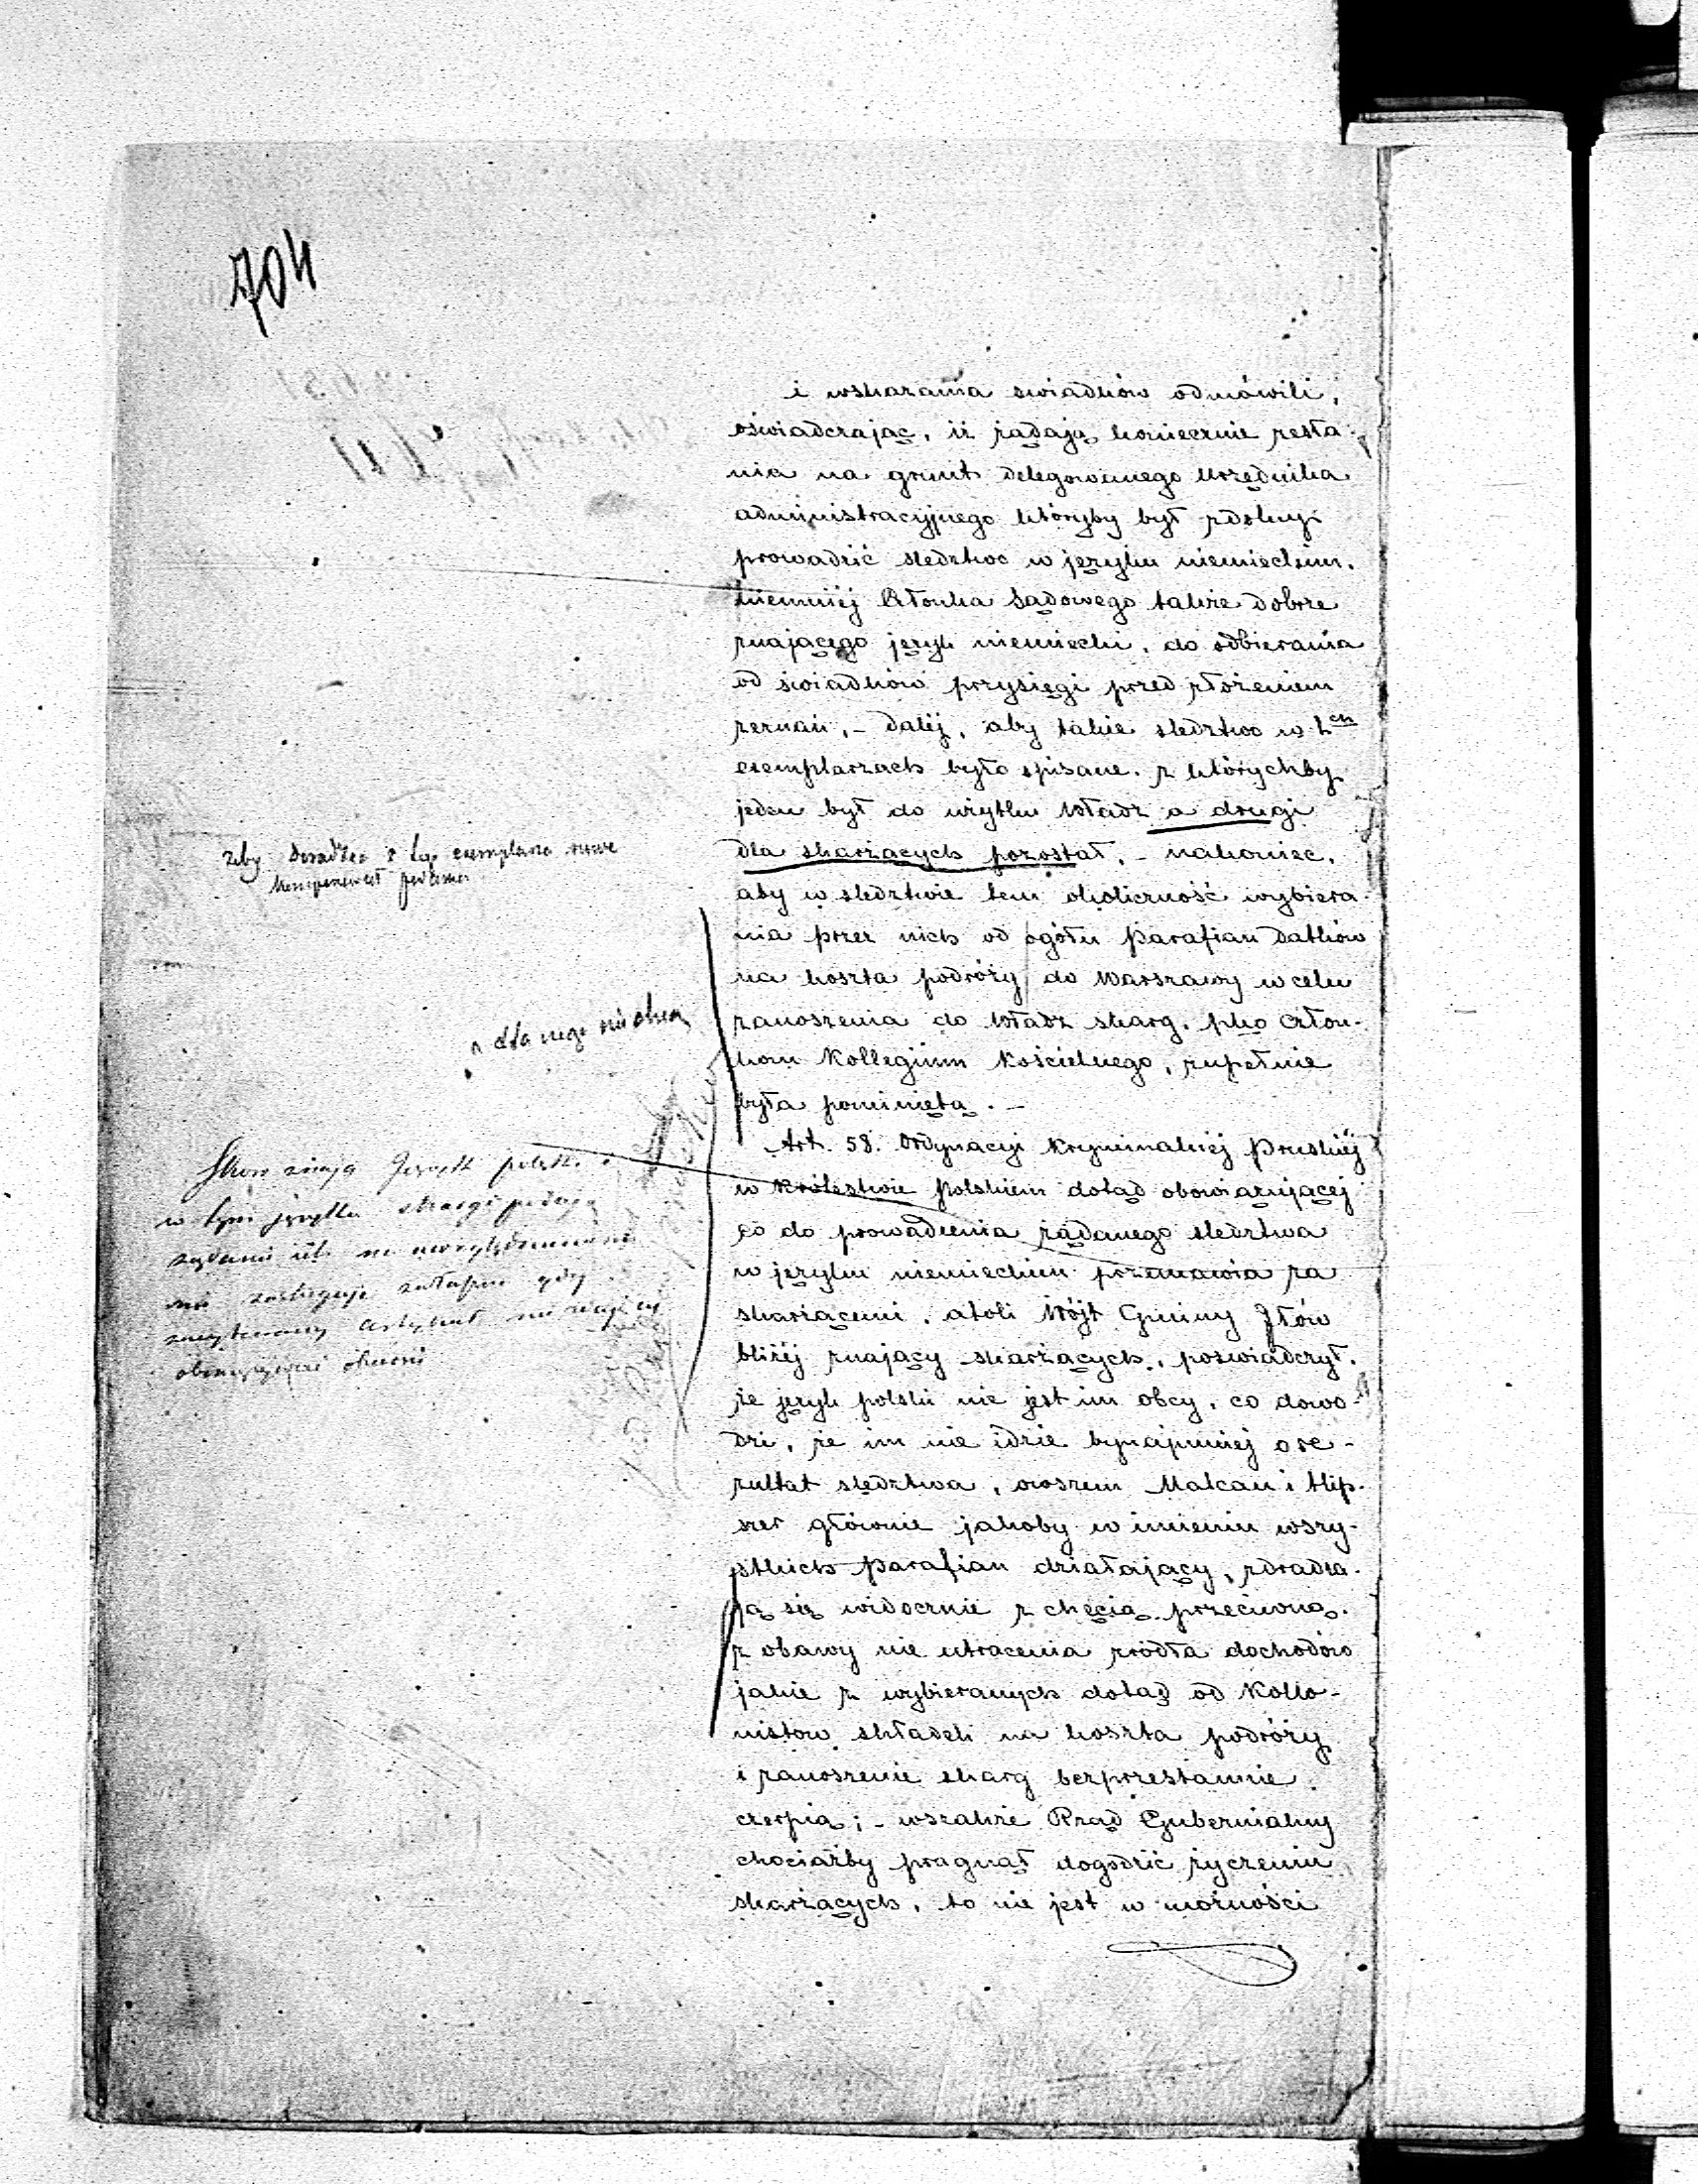 704
i wskazania swiadków odmówili,
oświadczając, iż żądają koniecznie zesła-
nia na grunt delegowanego Urzędnika
administracyjnego któryby był zdolny
prowadzić sledztwo w języku niemieckim.
niemniéj Członka Sądowego także dobrze
znającego język niemiecki, do odbierania
od świadków przysięgi przed złożeniem
zeznań, - daléj, aby takie sledztwo w 2ch
exemplarzach było spisane. z którychby
jeden był do użytku Władz a drugi
dla skarżących pozostał, - nakoniec,
aby w sledztwie tem okoliczność wybiera-
nia przez nich od ogółu Parafian datków
na koszta podróży do Warszawy w celu
zanoszenia do Władz skarg, pko Człon-
kom Kollegium Kościelnego, zupełnie
była pominiętą. -
Art. 58. Ordynacyi Kryminalnéj Pruskiéj
w Królestwie Polskiem dotąd obowiązującej
co do prowadzenia żądanego sledztwa
w języku niemieckim przemawia za
skarżącemi, atoli Wójt Gminy Iłów
bliżéj znający skarżących, poswiadczył,
że język polski nie jest im obcy, co dowo-
dzi, że im nie idzie bynajmniéj o re-
zultat sledztwa, owszem Malcan i Hip-
szer głównie jakoby w imieniu wszy-
stkich Parafian działający, zdradza-
ją się widocznie z chęcią przeciwną,
z obawy nie utracenia zródła dochodów
jakie z wybieranych dotąd od Kollo-
nistow składek na koszta podróży
i zanoszenie skarg bezprzestannie
czerpią; - wszakże Rząd Gubernialny
chociażby pragnął dogodzić życzeniu
skarżących, to nie jest w możności
żeby
a dla nego
Skoro znają Język polski i
w tym języku skargi podają
żądanie ich na uwzględnienie
nie zasługuje
artykuł